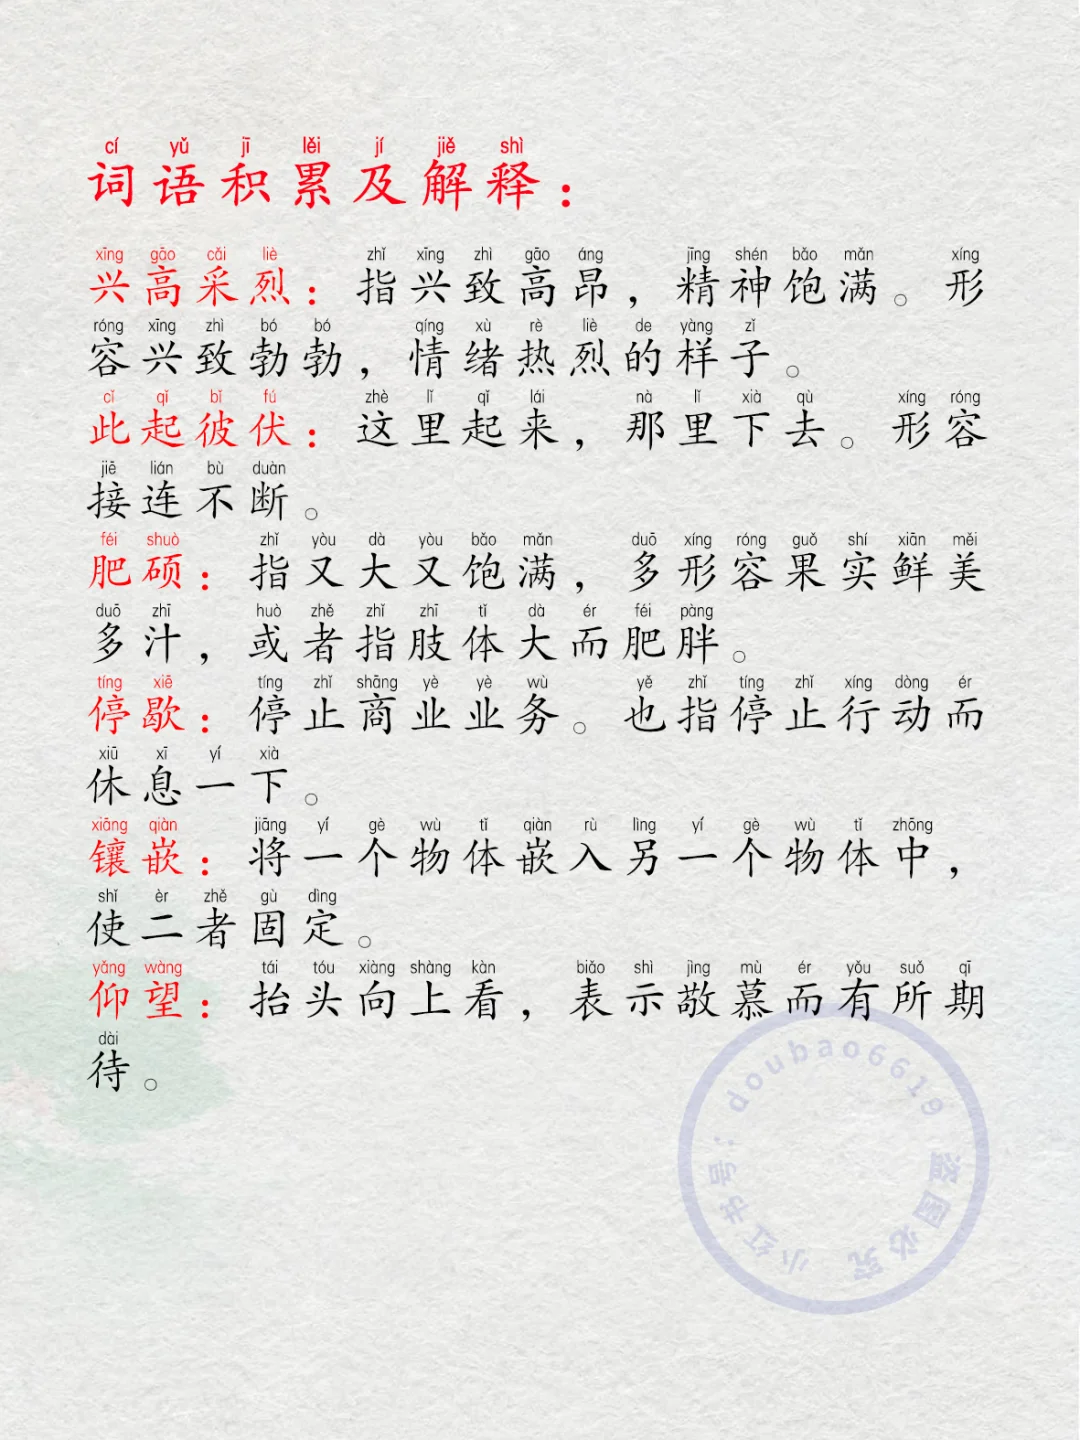 cí yǔ jī lěi jí jiě shì
词语积累及解释：
xīng gāo cǎi liè zhǐ xīng zhì gāo áng jīng shén bǎo mǎn xíng
兴高采烈：指兴致高昂，精神饱满。形
róng xīng zhì bó bó qíng xù rè liè de yàng zǐ
容兴致勃勃，情绪热烈的样子。
cǐ qǐ bǐ fú zhè lǐ qǐ lái nà lǐ xià qù xíng róng
此起彼伏：这里起来，那里下去。形容
jiē lián bù duàn
接连不断。
féi shuò zhǐ yòu dà yòu bǎo mǎn duō xíng róng guǒ shí xiān měi
肥硕：指又大又饱满，多形容果实鲜美
duō zhī huò zhě zhǐ zhī tǐ dà ér féi pàng
多汁，或者指肢体大而肥胖。
tíng xiē tíng zhǐ shāng yè yè wù yě zhǐ tíng zhǐ xíng dòng ér
停歇：停止商业业务。也指停止行动而
xiū xī yí xià
休息一下。
xiāng qiàn jiāng yí gè wù tǐ qiàn rù lìng yí gè wù tǐ zhōng
镶嵌：将一个物体嵌入另一个物体中，
shǐ èr zhě gù dìng
使二者固定。
yǎng wàng tái tóu xiàng shàng kàn biǎo shì jìng mù ér yǒu suǒ qī
仰望：抬头向上看，表示敬慕而有所期
dài
待。
小红书号：doubao6619
盗图必究